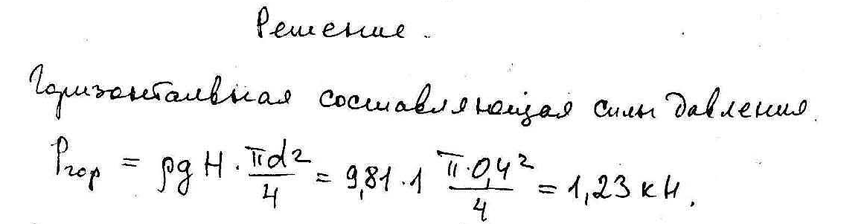 Решение.
Горизонтальная составляющая силы давления.
Pгор = ρgH · πd²/4 = 9,81 · 1 π·0,4²/4 = 1,23 кН.